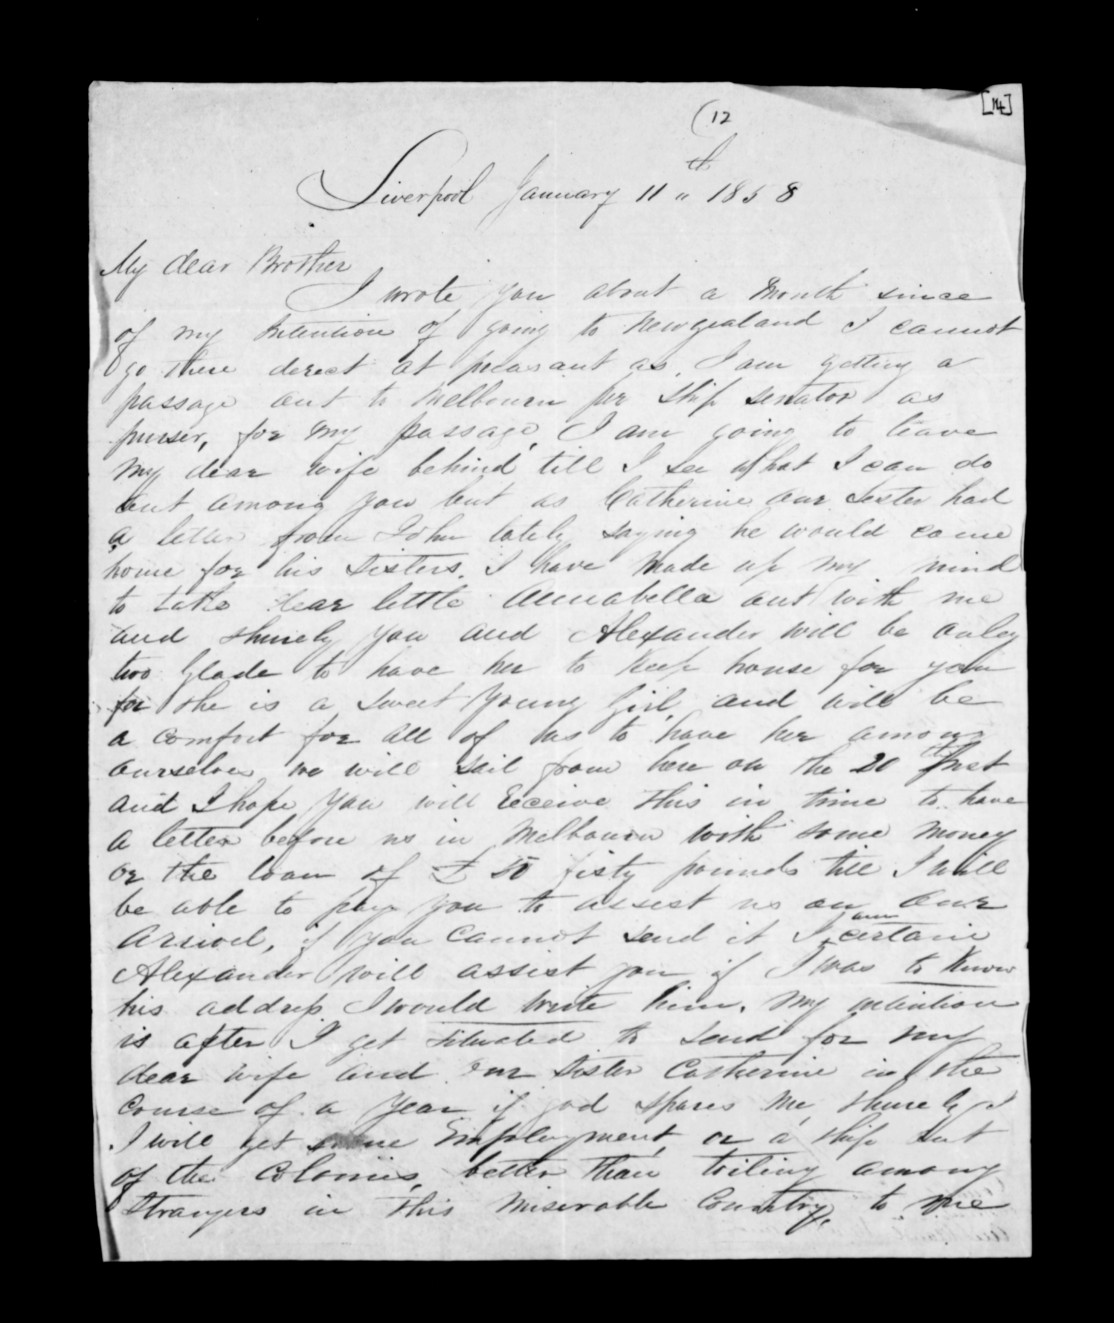 [14]
(12
Liverpool January 11th 1858
My dear Brother
I wrote you about a Month since
of my Intention of going to Newzealand I cannot
go there derect at preasant as, I am getting a
passage out to Melbourn per Ship Senator as
purser, for my passage, I am going to leave
My dear wife behind till I see What I can do
out among you but as Catherine our Sister had
a letter from John lately saying he would come
home for his Sisters. I have Made up my mind
to take dear little Annabella out with me
and shurely you and Alexander will be onley
two Glade to have her to Keep house for you
for she is a sweet young Girl, and will be
a comfort for all of us to have her among
ourselves, we will sail from here on the 20th Inst
and I hope you will Receive this in time to have
a letter before us in Melbourn with some Money
or the loan of £ 50 fisty pounds till I will
be able to pay you to assist us on our
arrivel, if you cannot send it I am certain
Alexander will assist you if I was to know
his address I would write him. My intention
is after I get Situated to send for my
dear wife and our Sister Catherine in the
course of a year if god spares Me, shurely I
I will get some Employment, or a ship out
of the Colonies, better than toiling among
Strangers in this Miserable Country, to me